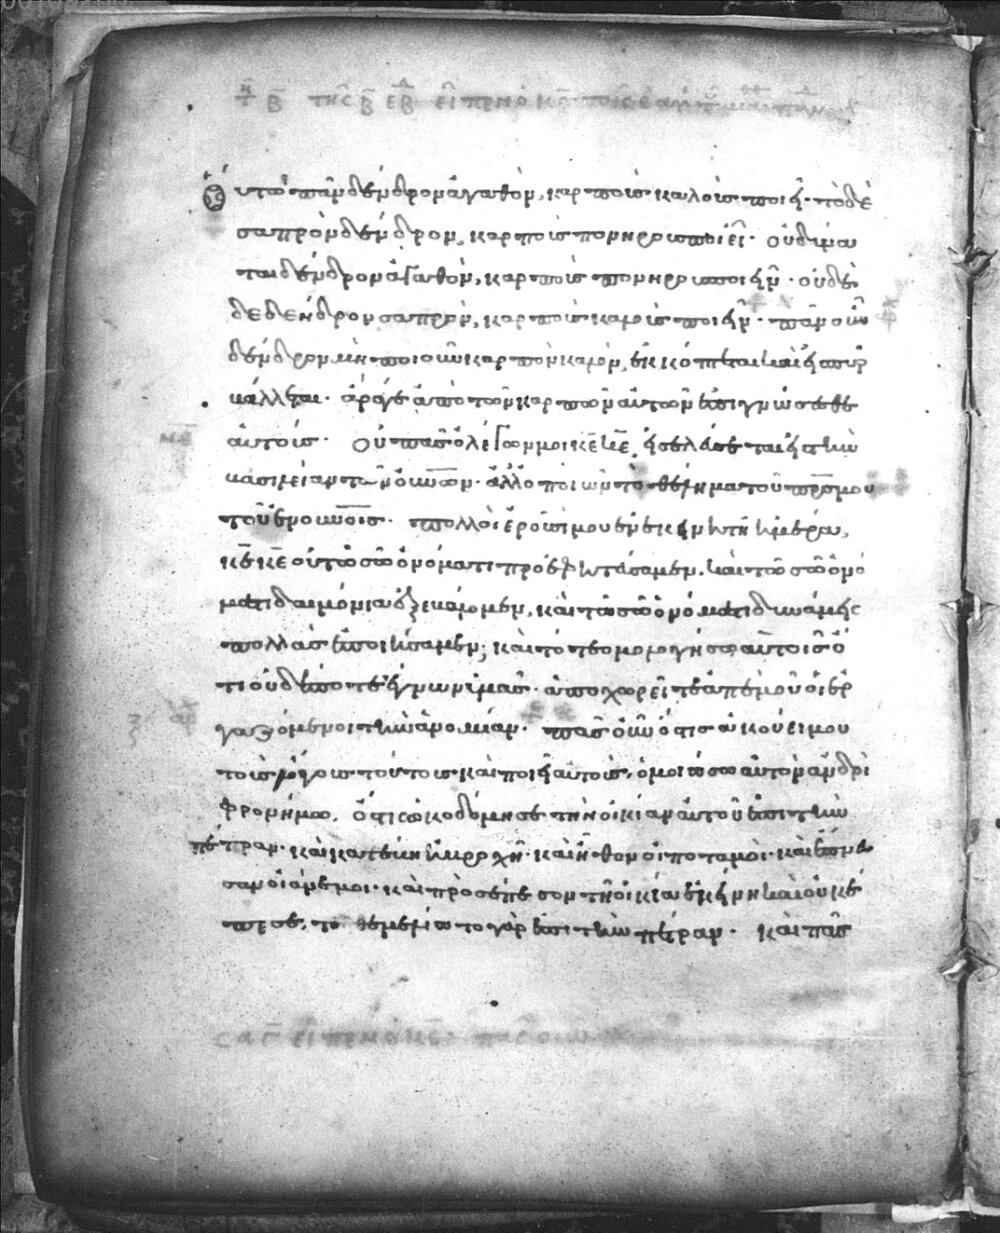 Οὕτω πᾶν δένδρον ἀγαθὸν, καρποὺς καλοὺς ποιεῖ· τὸ δὲ
σαπρὸν δένδρον, καρποὺς πονηροὺς ποιεῖ· οὐ δύνα
ται δένδρον ἀγαθὸν, καρποὺς πονηροὺς ποιεῖν· οὐδὲ
δένδρον σαπρὸν, καρποὺς καλοὺς ποιεῖν· πᾶν οὖν
δένδρον μὴ ποιοῦν καρπὸν καλὸν, ἐκκόπτεται καὶ εἰς πῦρ
βάλλεται· ἄρα γε ἀπὸ τῶν καρπῶν αὐτῶν ἐπιγνώσεσθε
αὐτούς· Οὐ πᾶς ὁ λέγων μοι κε κε, εἰσελεύσεται εἰς τὴν
βασιλείαν τῶν οὐνων· ἀλλ' ὁ ποιῶν τὸ θέλημα τοῦ πρσ μου
τοῦ ἐν οὐνοις· πολλοὶ ἐροῦσί μοι ἐν ἐκείνῃ τῇ ἡμέρᾳ,
κε κε οὐ τῷ σῷ ὀνόματι προεφητεύσαμεν, καὶ τῷ σῷ ὀνό
ματι δαιμόνια ἐξεβάλομεν, καὶ τῷ σῷ ὀνόματι δυνάμεις
πολλὰς ἐποιήσαμεν; καὶ τότε ὁμολογήσω αὐτοῖς ὅ
τι οὐδέποτε ἔγνων ὑμᾶς· ἀποχωρεῖτε ἀπ' ἐμοῦ οἱ ἐρ
γαζόμενοι τὴν ἀνομίαν· πᾶς οὖν ὅστις ἀκούει μου
τοὺς λόγους τούτους καὶ ποιεῖ αὐτούς, ὁμοιώσω αὐτὸν ἀνδρὶ
φρονήμω, ὅστις ὠκοδόμησε τὴν οἰκίαν αὐτοῦ ἐπὶ τὴν
πέτραν· καὶ κατέβη ἡ βροχὴ· καὶ ἦλθον οἱ ποταμοὶ· καὶ ἔπνευ
σαν οἱ ἄνεμοι· καὶ προσέπεσον τῇ οἰκίᾳ ἐκείνῃ καὶ οὐκ ἔ
πεσε, τεθεμελίωτο γὰρ ἐπὶ τὴν πέτραν· καὶ πᾶς